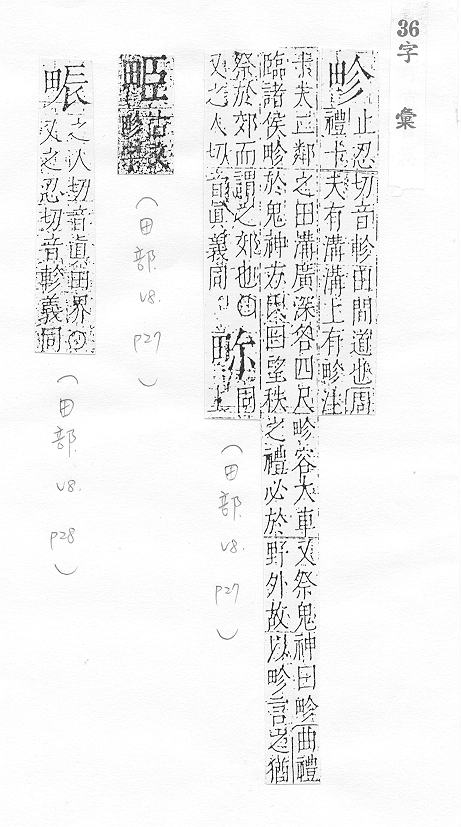 36 字彙
畛 止忍切音軫田間道也周
禮卡夫有溝溝上有畛注
十夫二鄰之田溝廣深各四尺畛容大車又祭鬼神曰畛曲禮
臨諸侯畛於鬼神方氏曰望秩之禮必於野外故以畛言之猶
祭於郊而謂之郊也 同
又之人切音真義同上
(田部 v8. p27)
古文畛字
(田部 v8. p27)
畛 之人切音真田界
又之忍切音軫義同
(田部 v8. p28)